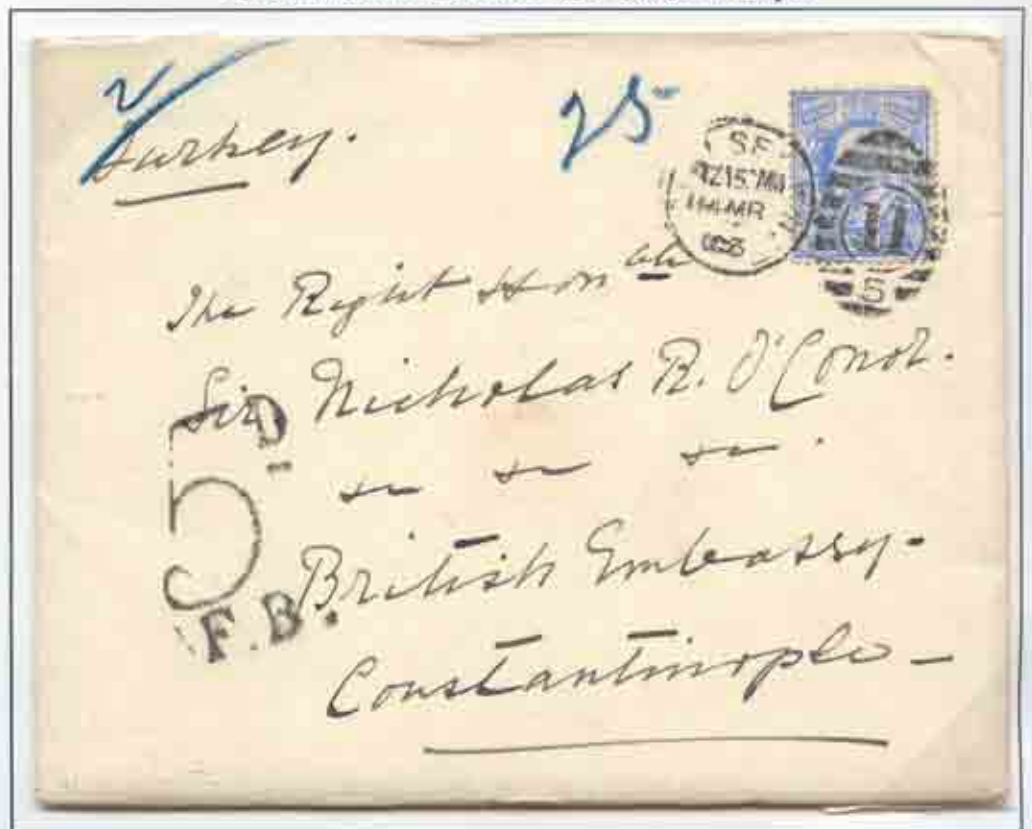 25
Turkey.
SF
1215 PM
MR
03
S
The Right Honble
Sir Nicholas R. O'Conor.
British Embassy-
Constantinople-
5D
F.B.